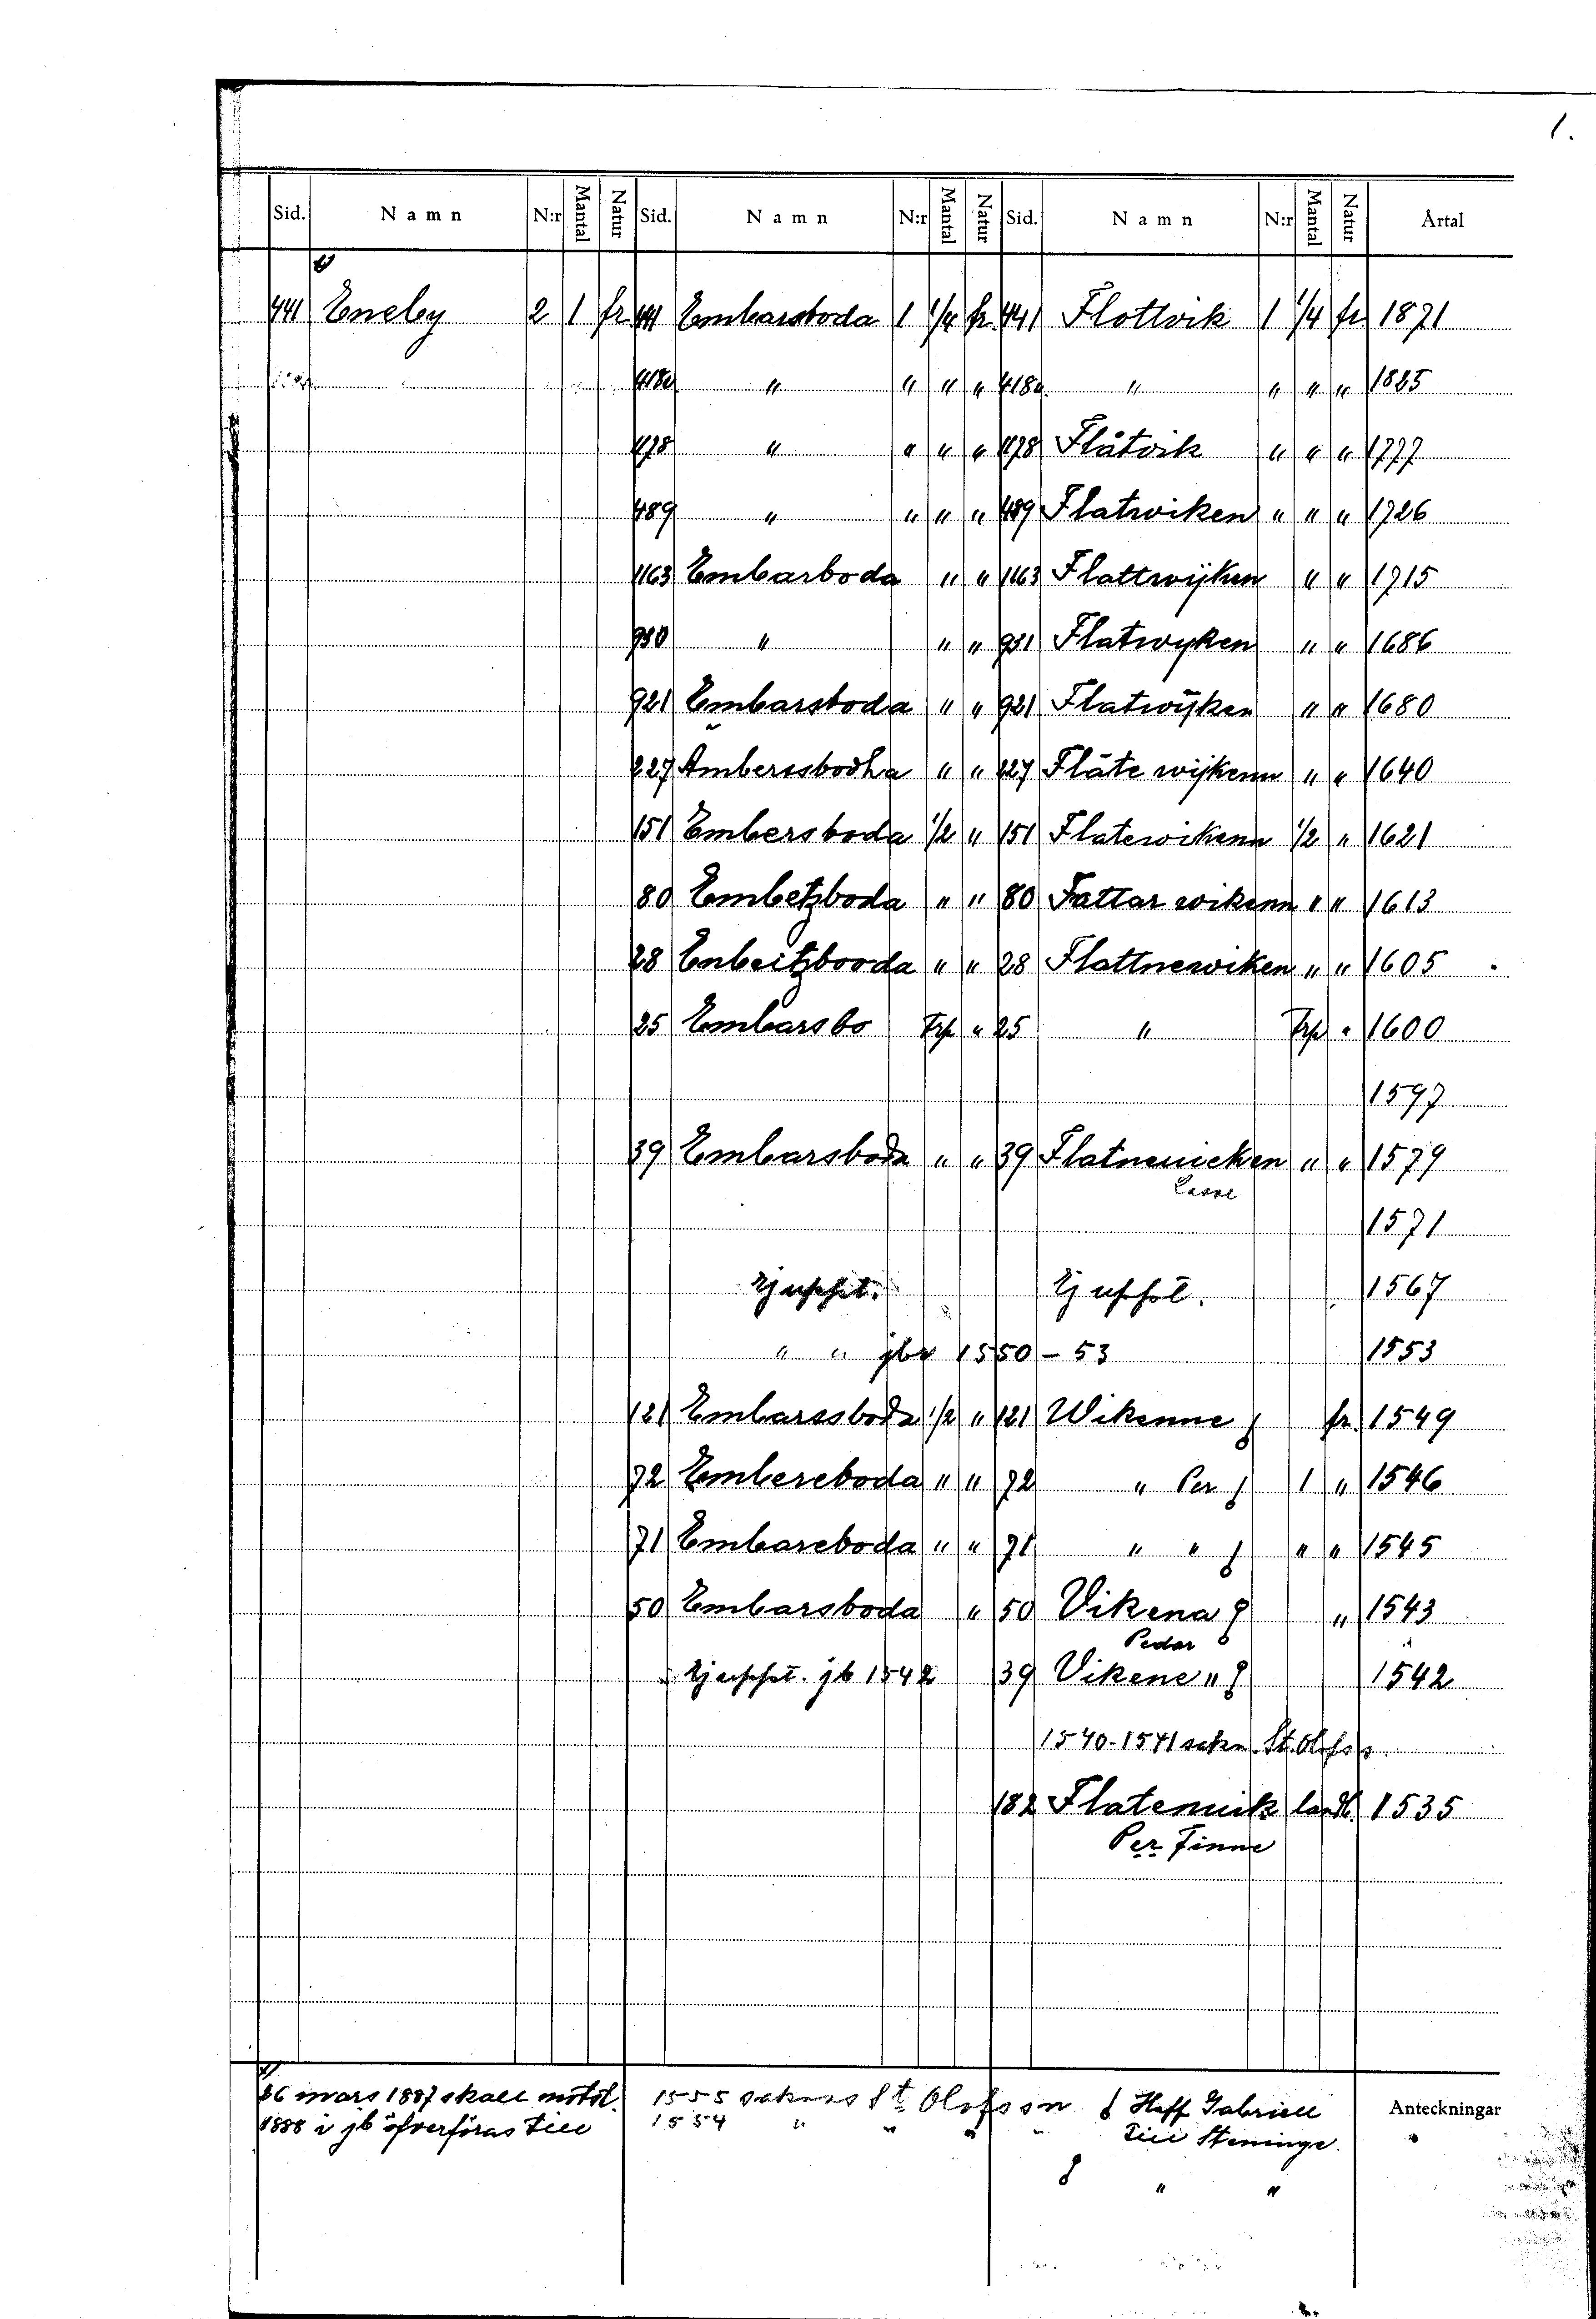 1.
Sid. Namn N:r Mantal Natur Sid. Namn N:r Mantal Natur Sid. Namn N:r Mantal Natur Årtal
441 Eneby 2 1 fr 441 Embarsboda 1 1/4 fr 441 Flottvik 1 1/4 fr 1871
418a " " " " 418a " " " " 1825
478 " " " " 478 Flåtvik " " " 1777
489 " " " " 489 Flatwiken " " " 1726
1163 Embarboda " " 1163 Flattwijken " " 1715
930 " " " 931 Flatwyken " " 1686
921 Embarsboda " " 921 Flatwÿken " " 1680
227 Ambersbodha " " 227 Fläte wijkenn " " 1640
151 Embersboda 1/2 " 151 Flatewikenn 1/2 " 1621
80 Embetzboda " " 80 Fattar wikenn " " 1613
28 Enbeitzboda " " 28 Flattnewiken " " 1605
25 Embarsbo Trp " 25 " Trp " 1600
1597
39 Embarsboda " " 39 Flatneuicken " " 1579
Lasse
1571
Ej uppt. Ej uppt. 1567
" " jbr 1550-53 1553
121 Embarssboda 1/2 " 121 Wikenne fr. 1549
72 Embereboda " " 72 " Per 1 " 1546
71 Embareboda " " 71 " " " " 1545
50 Embarsboda " 50 Vikena " 1543
Pedar
Ej uppt. jb 1542 39 Vikene " 1542
1540-1541 sakn. St. Olofss
182 Flateuik landb. 1535
Per Finne
26 mars 1887 skall motst.
1888 i jb öfverföras till
1555 saknas St. Olofson
1554 " " " "
Heff Gabriell
till Steninge.
" "
Anteckningar